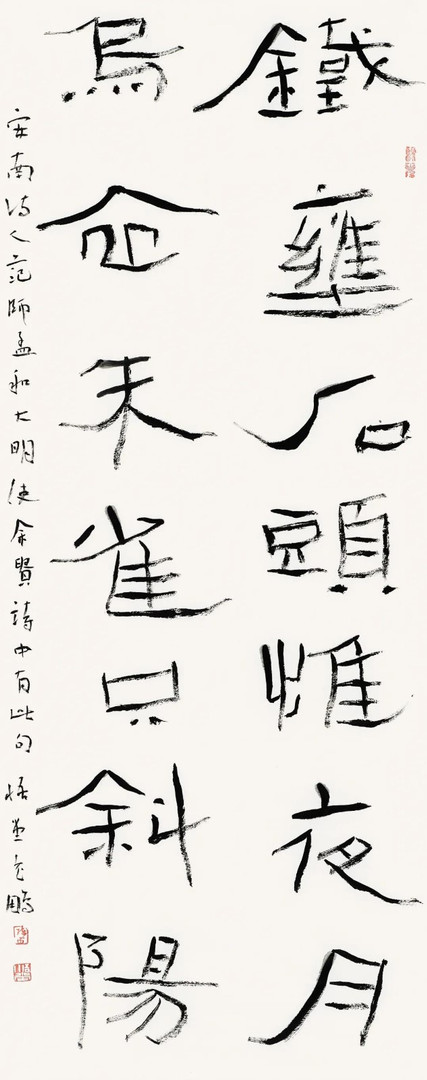 鐵壅石頭惟夜月
烏衣朱雀只斜陽
安南詩人范師孟和大明使余賢詩中有此句 鵬